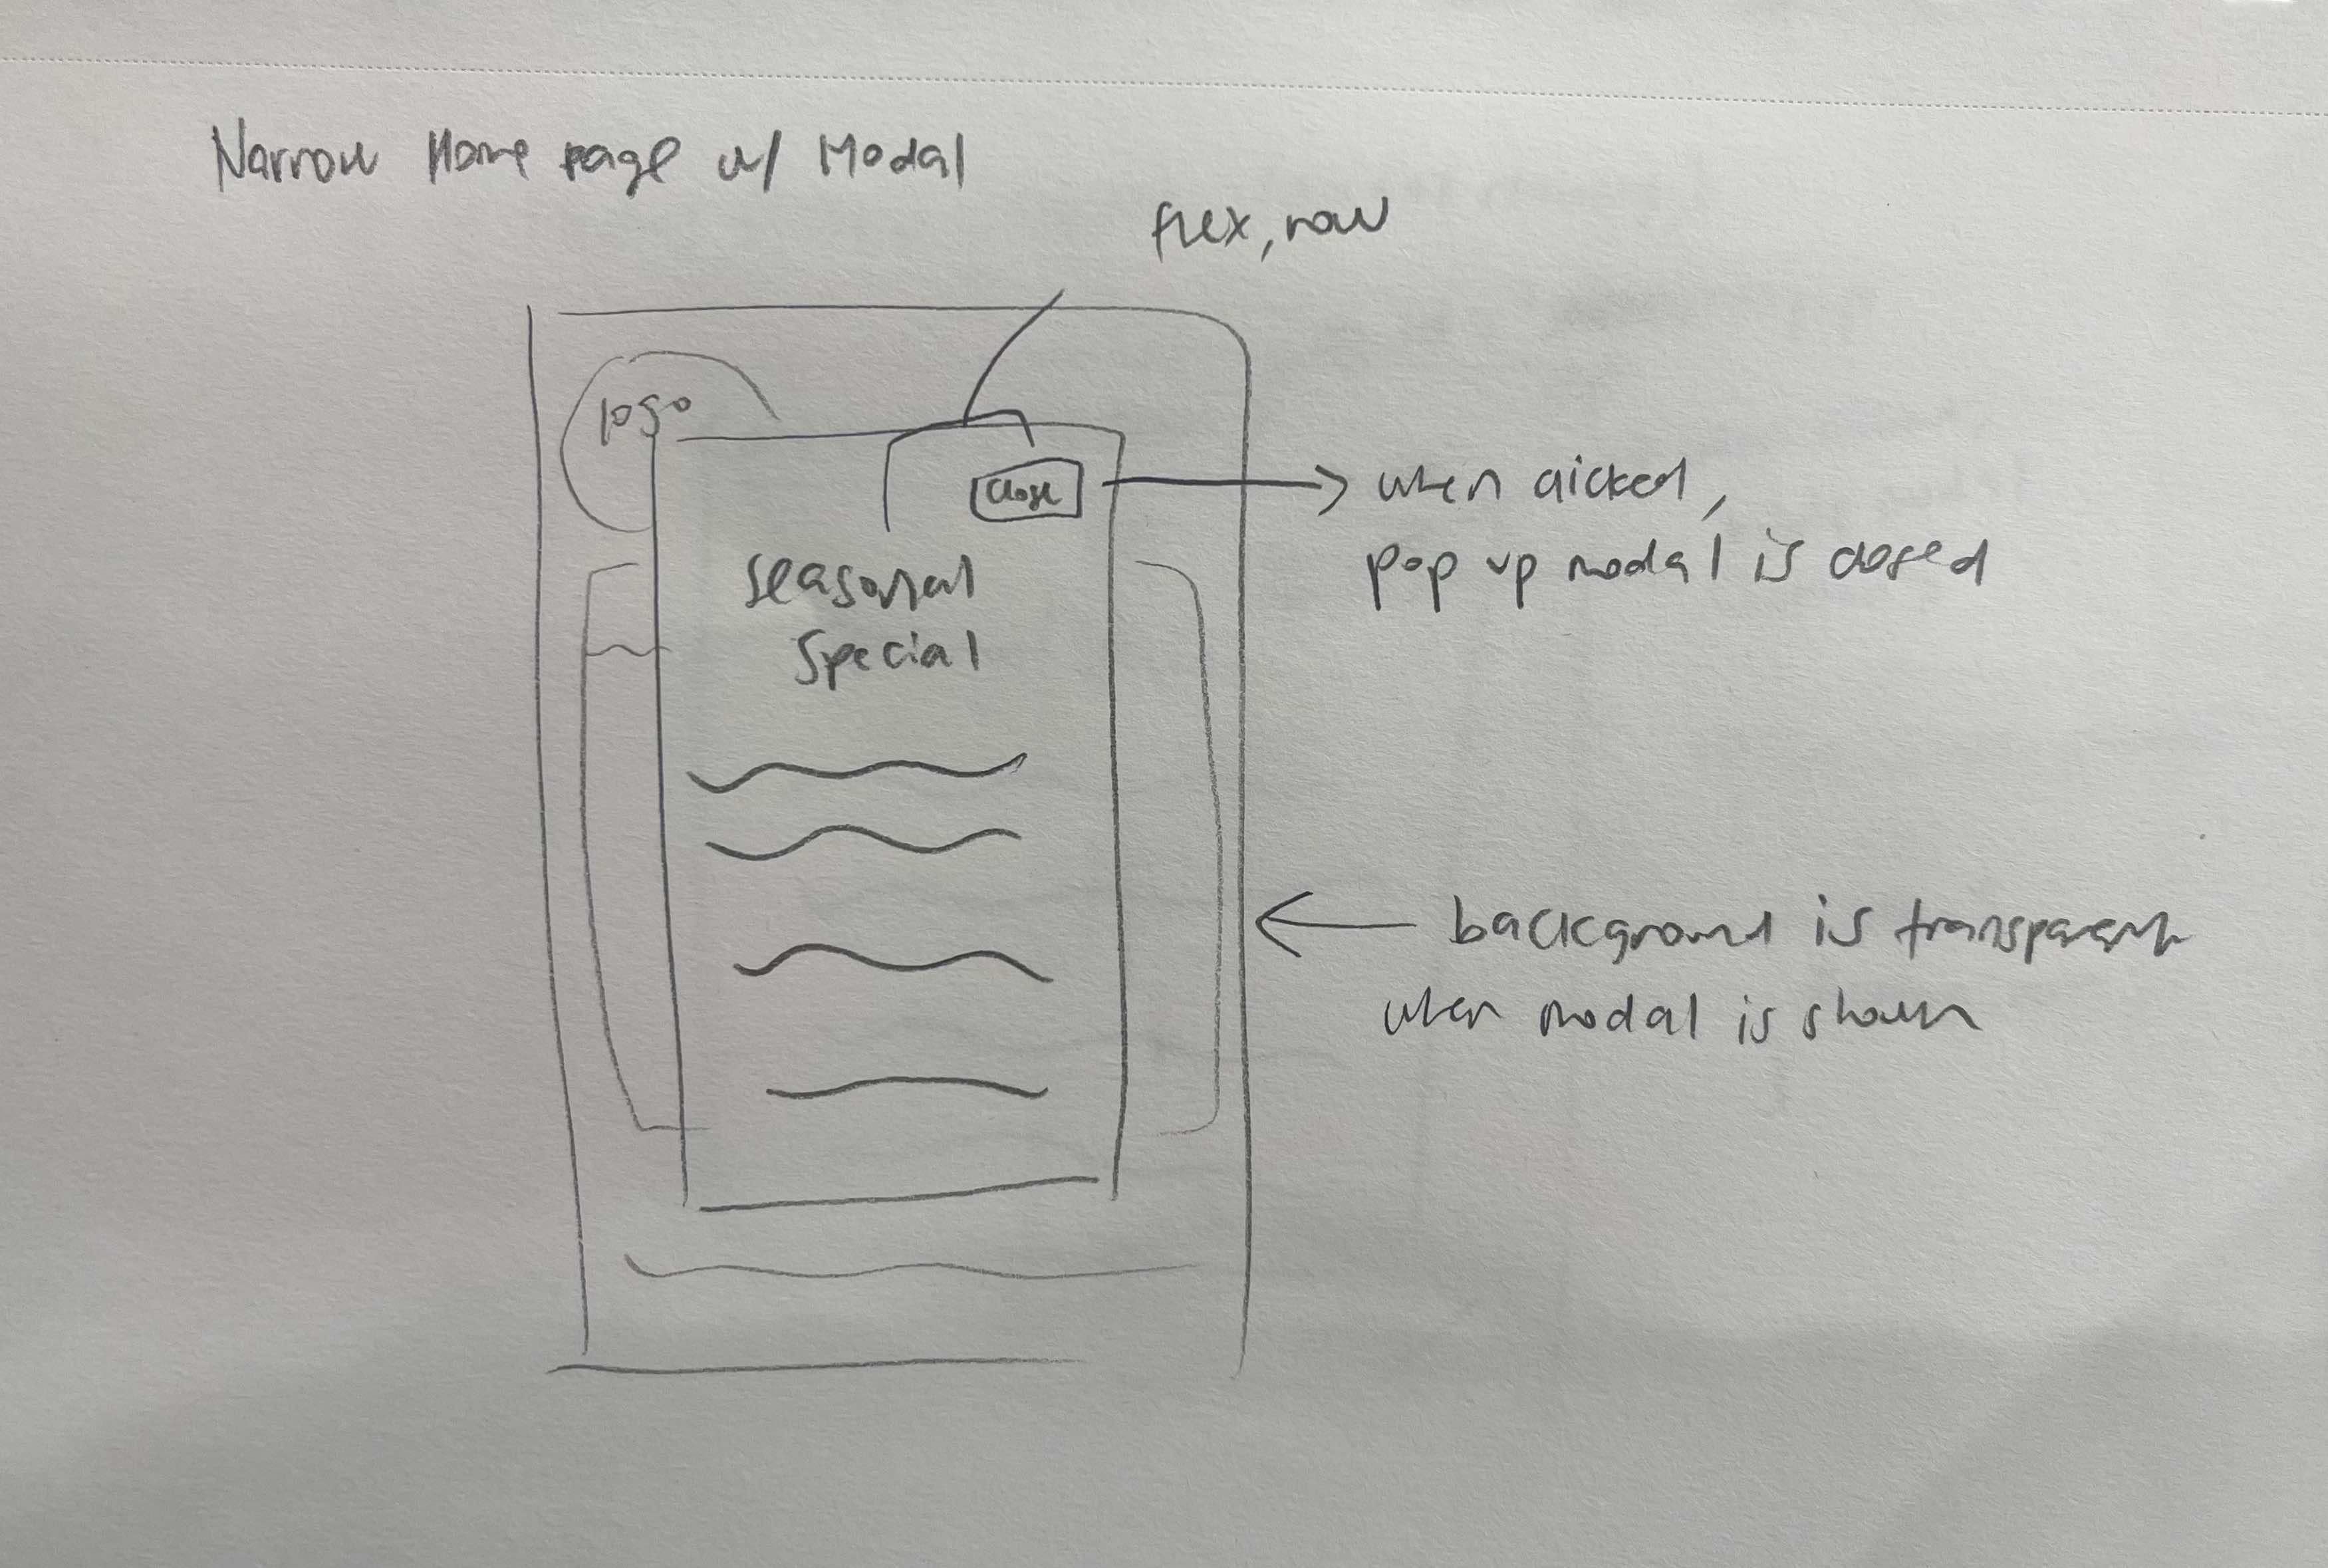 Narrow Home page w/ Modal
flex, row
logo
close
when clicked,
pop up modal is closed
seasonal
special
background is transparent
when modal is shown